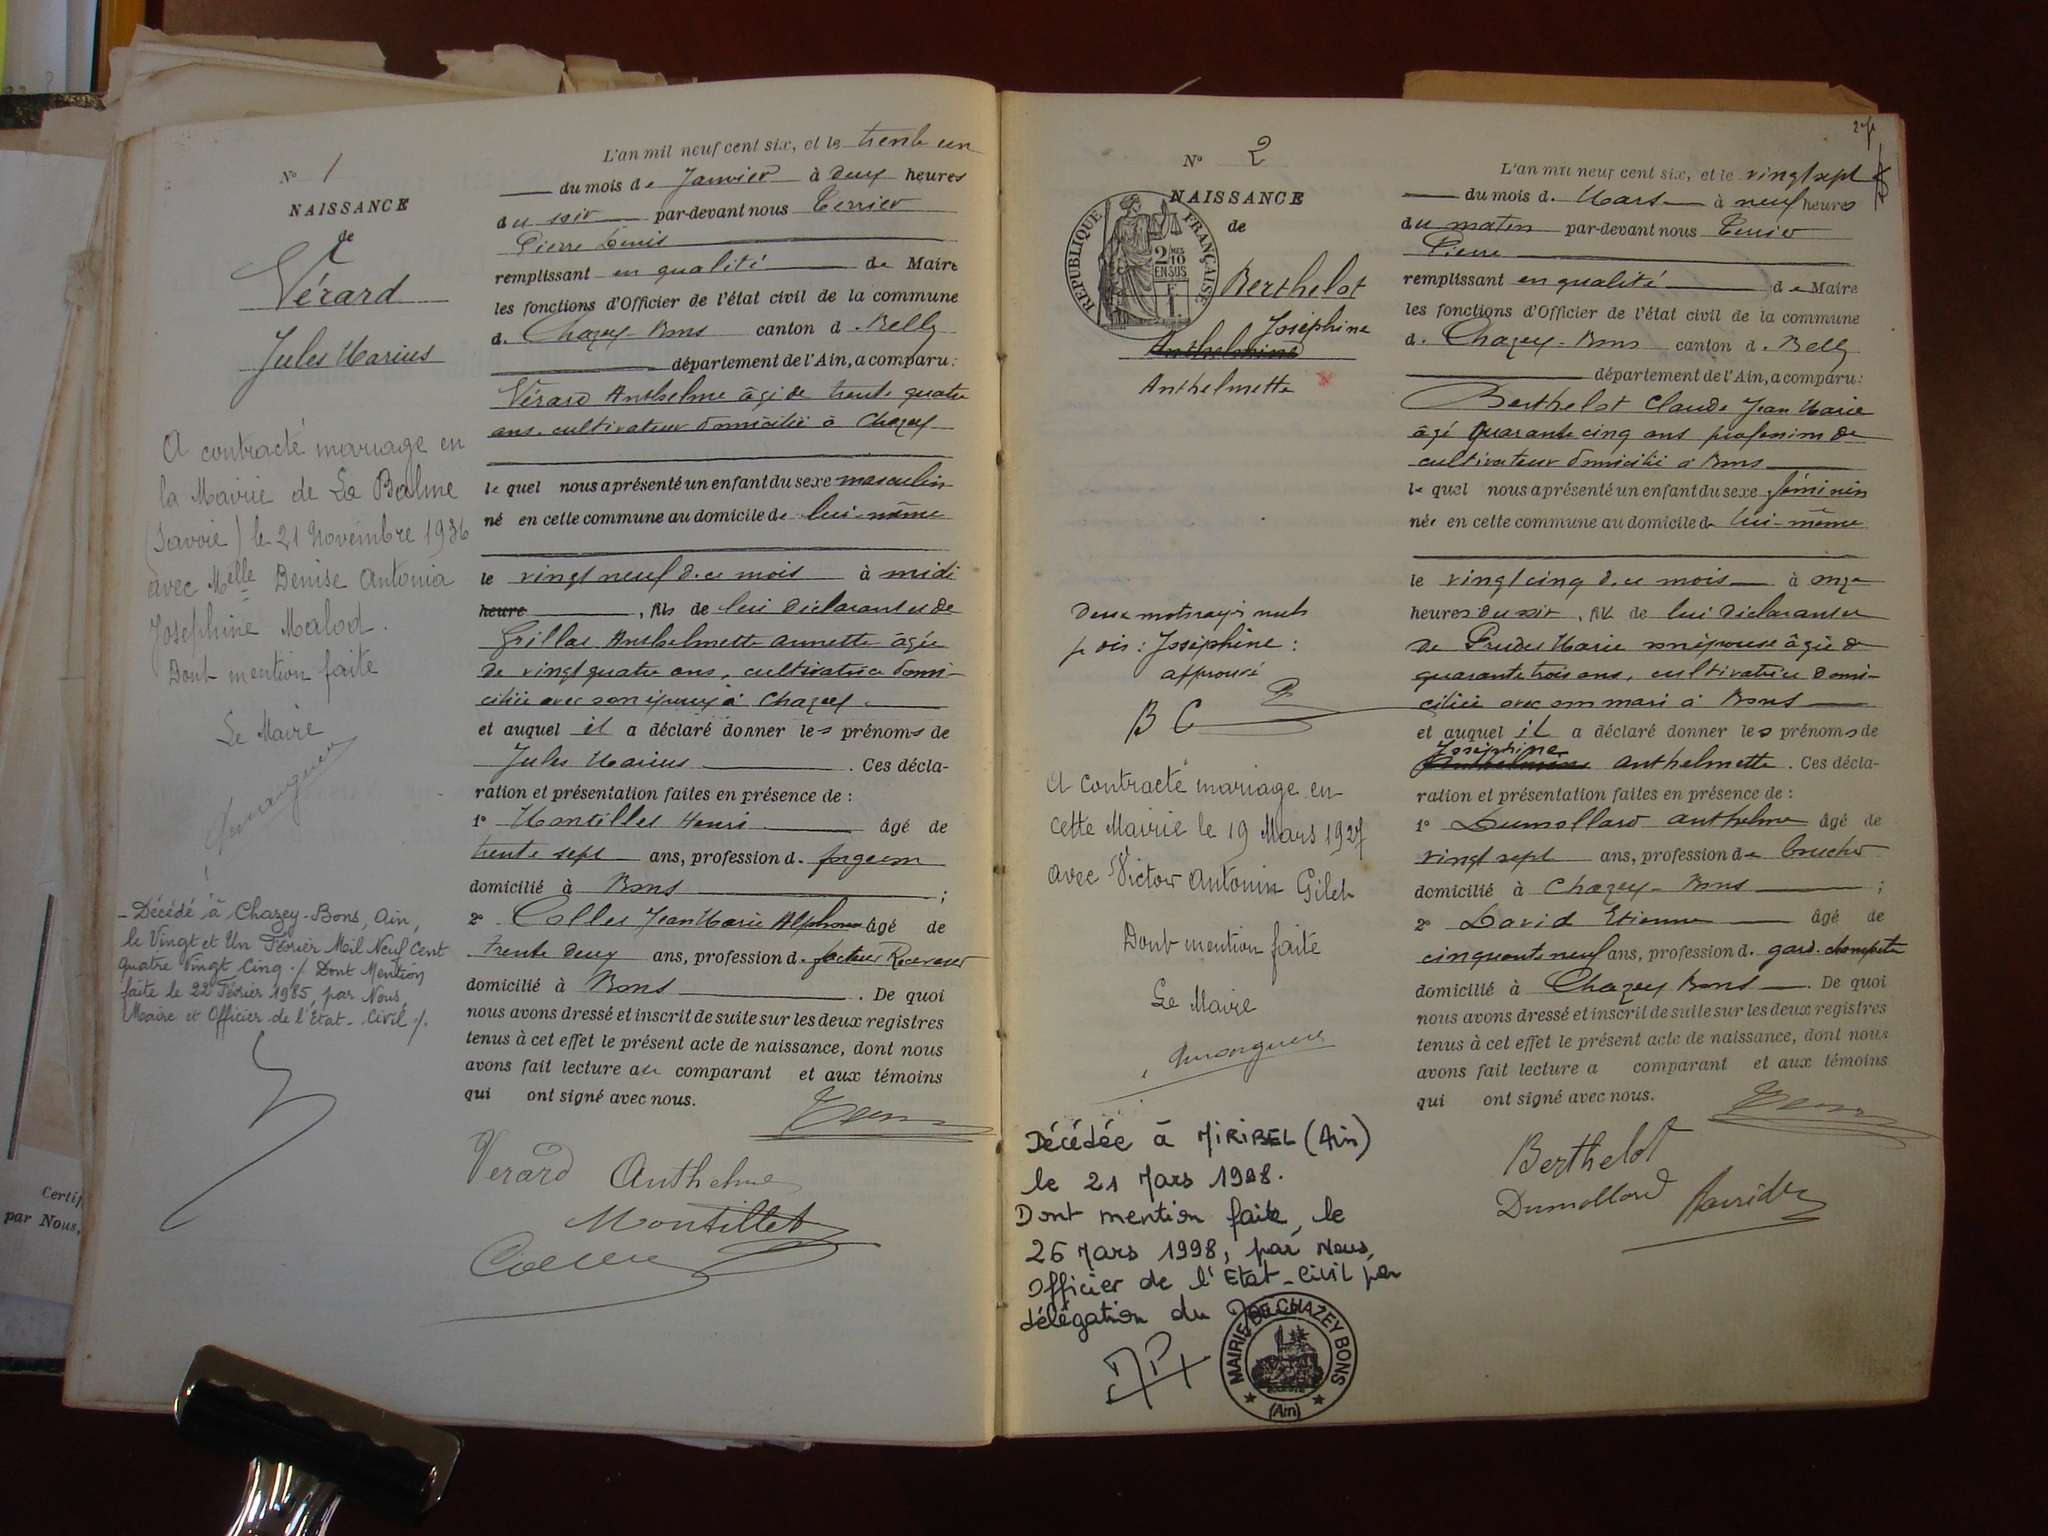 N° 1
NAISSANCE
de
Vérard
Jules Marius
A contracté mariage en
la Mairie de La Balme
(Savoie) le 21 Novembre 1936
avec Melle Denise Antonia
Joséphine Malod.
Dont mention faite
Le Maire
- Décédé à Chazey-Bons, Ain,
le Vingt et Un Février Mil Neuf Cent
quatre Vingt Cinq ./. Dont Mention
faite le 22 Février 1985, par Nous,
Maire et Officier de l'Etat-Civil ./.
L'an mil neuf cent six, et le trente un
du mois de Janvier à deux heures
du soir par-devant nous Terrier
Pierre Denis
remplissant en qualité de Maire
les fonctions d'Officier de l'état civil de la commune
d. Chazey-Bons canton d. Belley
département de l'Ain, a comparu:
Vérard Anthelme âgé de trente quatre
ans, cultivateur domicilié à Chazey
le quel nous a présenté un enfant du sexe masculin
né en cette commune au domicile de lui-même
le vingt neuf de ce mois à midi
heure , fils de lui déclarant et de
Grillot Anthelmette Annette âgée
de vingt quatre ans, cultivatrice domi-
ciliée avec son époux à Chazey
et auquel il a déclaré donner les prénoms de
Jules Marius . Ces décla-
ration et présentation faites en présence de :
1° Montillet Henri âgé de
trente sept ans, profession d. forgeron
domicilié à Bons ;
2° Collet Jean Marie Alphonse âgé de
trente deux ans, profession d. facteur Receveur
domicilié à Bons . De quoi
nous avons dressé et inscrit de suite sur les deux registres
tenus à cet effet le présent acte de naissance, dont nous
avons fait lecture au comparant et aux témoins
qui ont signé avec nous.
Verard Anthelme
Montillet
Certif
par Nous,
N° 2
NAISSANCE
de
REPUBLIQUE FRANÇAISE
2/10 EN SUS
Berthelot
Joséphine
Anthelmine
Anthelmette
Deux mots rayés nuls
Joséphine :
approuvé
B C
A contracté mariage en
cette Mairie le 19 Mars 1927
avec Victor Antonin Gilet
Dont mention faite
Le Maire
Décédée à MIRIBEL (Ain)
le 21 Mars 1998.
Dont mention faite, le
26 Mars 1998, par Nous,
Officier de l'Etat-Civil par
délégation du Maire
MAIRIE DE CHAZEY BONS
(Ain)
L'an mil neuf cent six, et le vingt sept
du mois d. Mars à neuf heures
du matin par-devant nous Terrier
Pierre
remplissant en qualité de Maire
les fonctions d'Officier de l'état civil de la commune
d. Chazey-Bons canton d. Belley
département de l'Ain, a comparu:
Berthelot Claude Jean Marie
âgé quarante cinq ans profession de
cultivateur domicilié à Bons
le quel nous a présenté un enfant du sexe féminin
née en cette commune au domicile de lui-même
le vingt cinq de ce mois à onze
heures du soir , fille de lui déclarant et
de Prudet Marie son épouse âgée de
quarante trois ans, cultivatrice domi-
ciliée avec son mari à Bons
et auquel il a déclaré donner les prénoms de
Joséphine
Anthelmine Anthelmette . Ces décla-
ration et présentation faites en présence de :
1° Dumollard Anthelme âgé de
vingt sept ans, profession de boucher
domicilié à Chazey-Bons ;
2° David Etienne âgé de
cinquante neuf ans, profession d. garde champêtre
domicilié à Chazey Bons . De quoi
nous avons dressé et inscrit de suite sur les deux registres
tenus à cet effet le présent acte de naissance, dont nous
avons fait lecture a comparant et aux témoins
qui ont signé avec nous.
Berthelot
Dumollard David